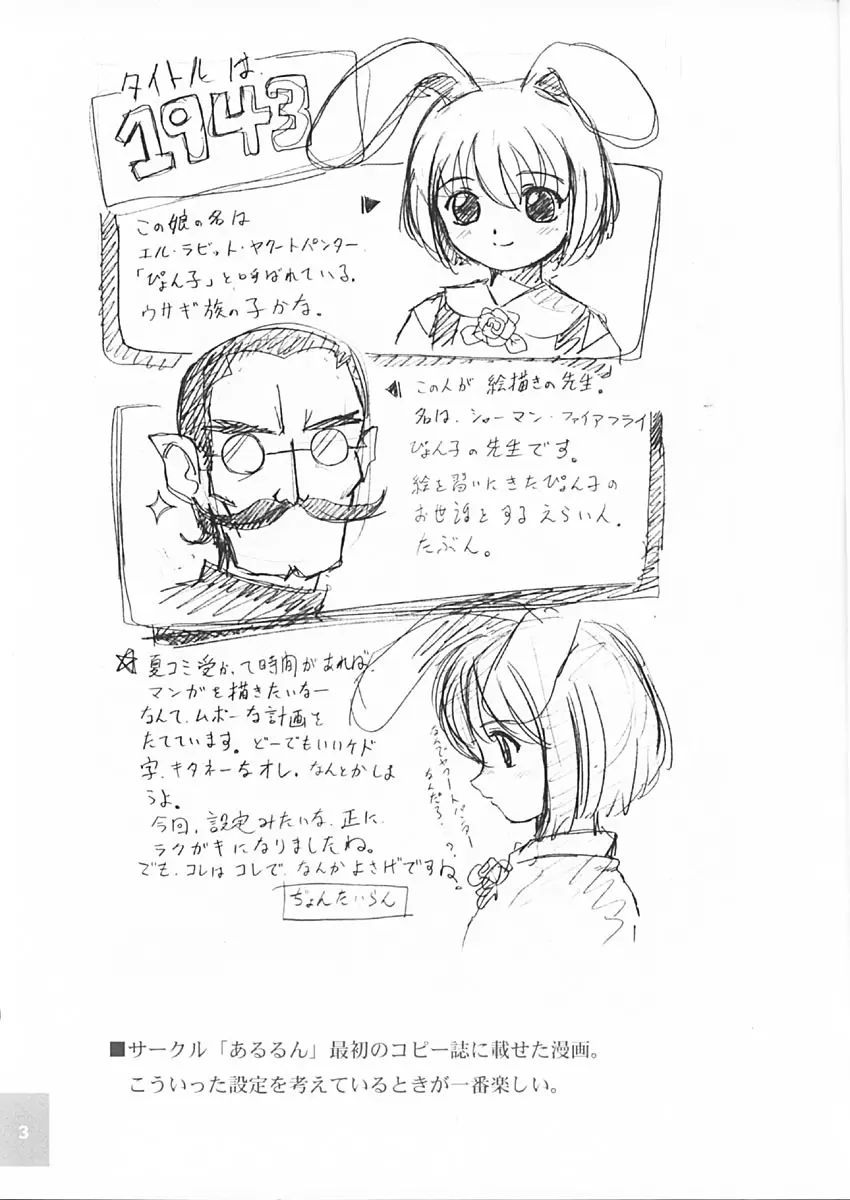 タイトルは
1943
この娘の名は
エル・ラビット・ヤクートパンター.
「ぴょん子」と呼ばれている.
ウサギ族の子かな。
この人が 絵描きの先生。
名は、シャーマン・ファイアフライ
ぴょん子の先生です。
絵を習いにきたぴょん子の
お世話とするえらい人.
たぶん。
☆夏コミ受かって時間があれば、
マンガを描きたいなー
なんて、ムボーな計画を
たてています。どーでもいいケド
字、キタネーなオレ。なんとかしま
うよ。
今回、設定みたいな、正に、
ラクガキになりましたね。
でも、コレはコレで、なんかよさげですね。
なんでヤクートパンター
なんだろ、?
ぢょんたいらん
■サークル「あるるん」最初のコピー誌に載せた漫画。
こういった設定を考えているときが一番楽しい。
3